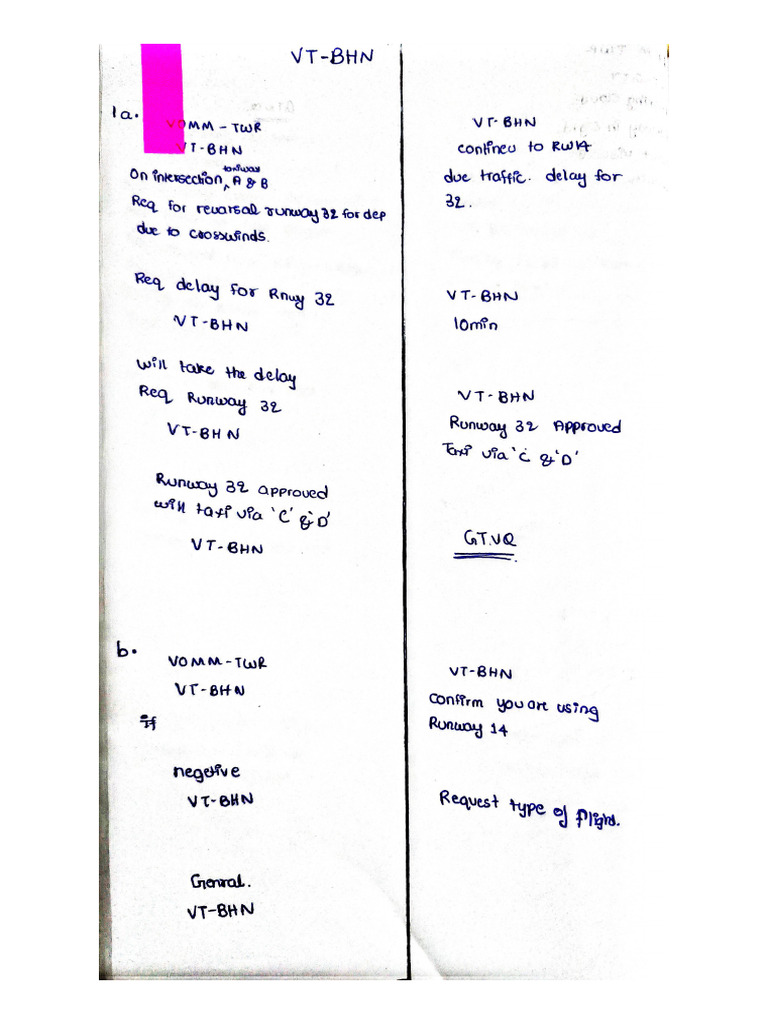 VT-BHN
1a.
VOMM-TWR
VT-BHN
taxiway
On intersection, A & B
Req for reversal runway 32 for dep
due to crosswinds.
Req delay for Rnwy 32
VT-BHN
will take the delay
Req Runway 32
VT-BHN
Runway 32 approved
will taxi via 'C' & 'D'
VT-BHN
b.
VOMM-TWR
VT-BHN
if
negetive
VT-BHN
General.
VT-BHN
VT-BHN
contineu to RW14
due traffic. delay for
32.
VT-BHN
10min
VT-BHN
Runway 32 Approved
Taxi via 'C' & 'D'
VT-BHN
Confirm you are using
Runway 14
Request type of flight.